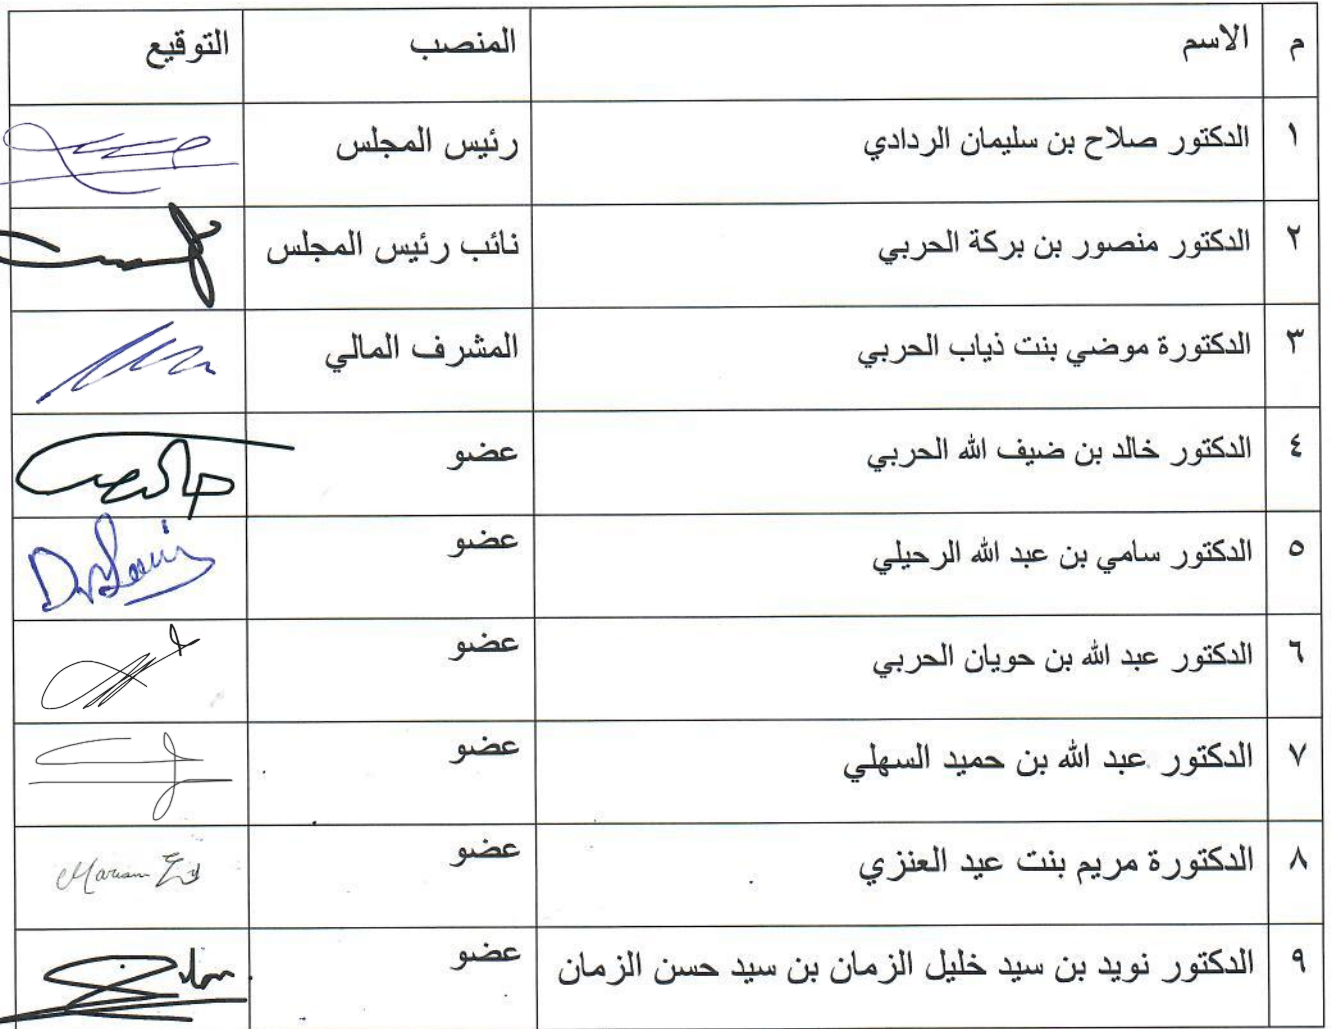 م الاسم المنصب التوقيع
١ الدكتور صلاح بن سليمان الردادي رئيس المجلس
٢ الدكتور منصور بن بركة الحربي نائب رئيس المجلس
٣ الدكتورة موضي بنت ذياب الحربي المشرف المالي
٤ الدكتور خالد بن ضيف الله الحربي عضو
٥ الدكتور سامي بن عبد الله الرحيلي عضو
٦ الدكتور عبد الله بن حويان الحربي عضو
٧ الدكتور عبد الله بن حميد السهلي عضو
٨ الدكتورة مريم بنت عيد العنزي عضو Mariam Eid
٩ الدكتور نويد بن سيد خليل الزمان بن سيد حسن الزمان عضو